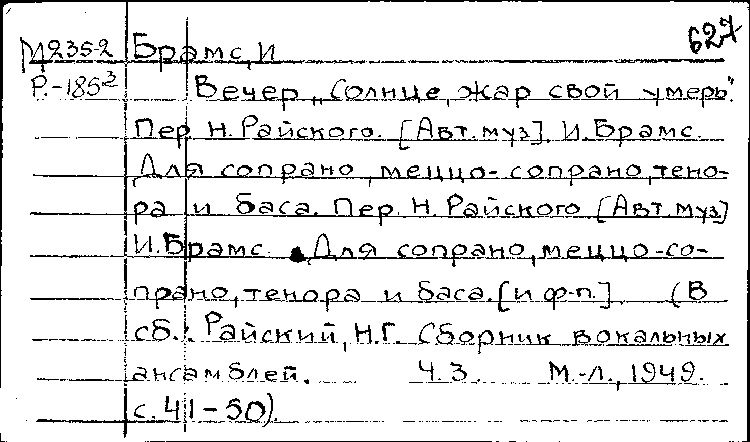 М235-2 Брамс, И 627
Р.-185³ Вечер „Солнце, жар свой умерь".
Пер. Н. Райского. [Авт. муз]. И. Брамс.
Для сопрано, меццо-сопрано, тено-
ра и баса. Пер. Н. Райского [Авт. муз]
И. Брамс. Для сопрано, меццо-со-
прано, тенора и баса. [и ф-п.]. (В
сб.: Райский, Н.Г. Сборник вокальных
ансамблей. Ч. 3. М.-л., 1949.
с. 41-50).